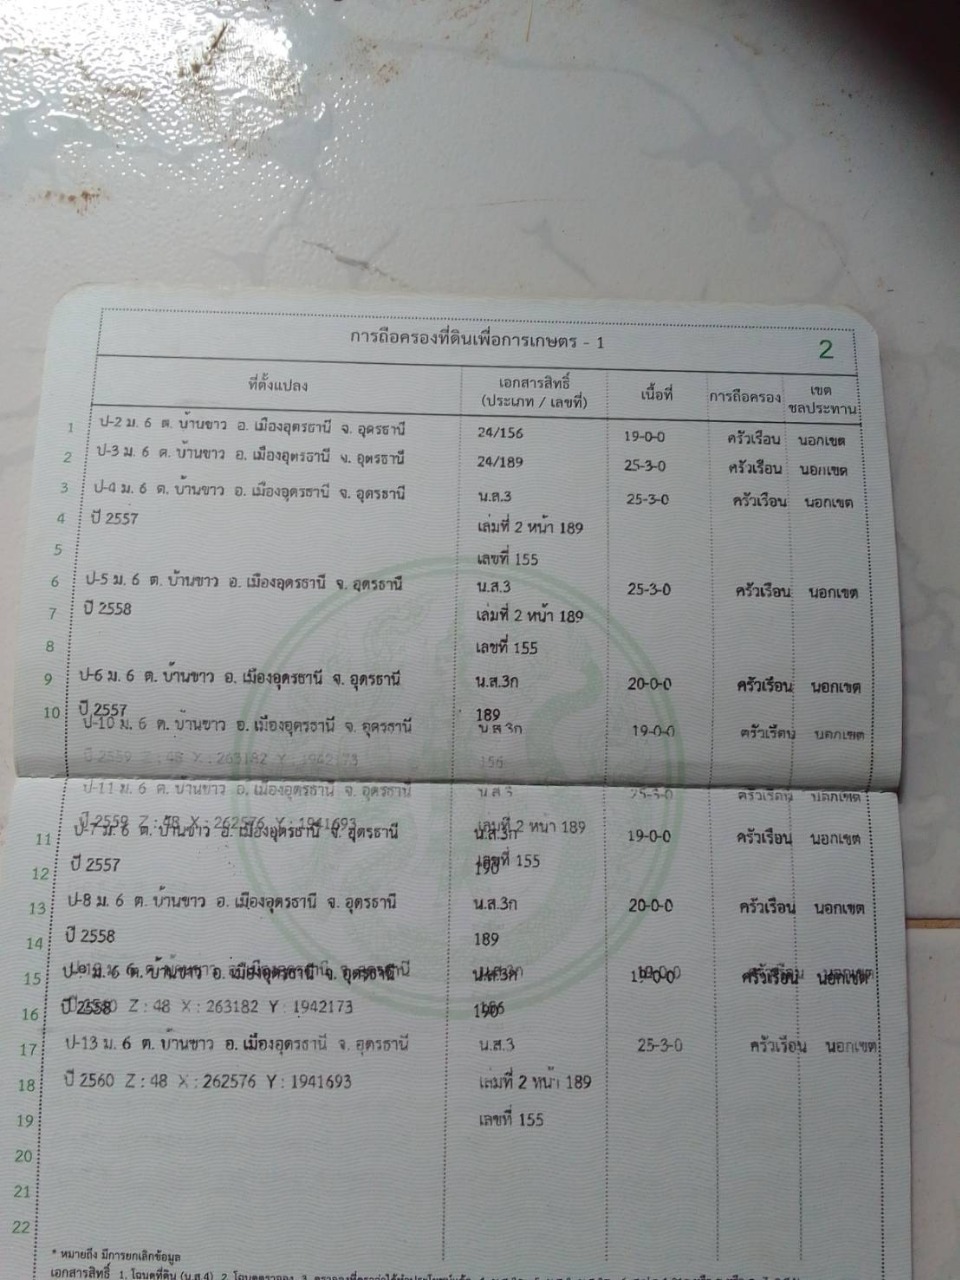 การถือครองที่ดินเพื่อการเกษตร - 1
2
ที่ตั้งแปลง เอกสารสิทธิ์ (ประเภท / เลขที่) เนื้อที่ การถือครอง เขตชลประทาน
1 ป-2 ม. 6 ต. บ้านขาว อ. เมืองอุดรธานี จ. อุดรธานี 24/156 19-0-0 ครัวเรือน นอกเขต
2 ป-3 ม. 6 ต. บ้านขาว อ. เมืองอุดรธานี จ. อุดรธานี 24/189 25-3-0 ครัวเรือน นอกเขต
3 ป-4 ม. 6 ต. บ้านขาว อ. เมืองอุดรธานี จ. อุดรธานี น.ส.3 25-3-0 ครัวเรือน นอกเขต
4 ปี 2557 เล่มที่ 2 หน้า 189
5 เลขที่ 155
6 ป-5 ม. 6 ต. บ้านขาว อ. เมืองอุดรธานี จ. อุดรธานี น.ส.3 25-3-0 ครัวเรือน นอกเขต
7 ปี 2558 เล่มที่ 2 หน้า 189
8 เลขที่ 155
9 ป-6 ม. 6 ต. บ้านขาว อ. เมืองอุดรธานี จ. อุดรธานี น.ส.3ก 20-0-0 ครัวเรือน นอกเขต
10 ปี 2557 189
ป-10 ม. 6 ต. บ้านขาว อ. เมืองอุดรธานี จ. อุดรธานี น.ส.3ก 19-0-0 ครัวเรือน นอกเขต
ปี 2559 Z : 48 X : 263182 Y : 1942173 156
ป-11 ม. 6 ต. บ้านขาว อ. เมืองอุดรธานี จ. อุดรธานี น.ส.3 25-3-0 ครัวเรือน นอกเขต
ปี 2559 Z : 48 X : 262576 Y : 1941693 เล่มที่ 2 หน้า 189
11 ป-7 ม. 6 ต. บ้านขาว อ. เมืองอุดรธานี จ. อุดรธานี น.ส.3ก 19-0-0 ครัวเรือน นอกเขต
เลขที่ 155
12 ปี 2557 190
13 ป-8 ม. 6 ต. บ้านขาว อ. เมืองอุดรธานี จ. อุดรธานี น.ส.3ก 20-0-0 ครัวเรือน นอกเขต
14 ปี 2558 189
15 ป-9 ม. 6 ต. บ้านขาว อ. เมืองอุดรธานี จ. อุดรธานี น.ส.3ก 19-0-0 ครัวเรือน นอกเขต
16 ปี 2558 190
Z : 48 X : 263182 Y : 1942173 156
17 ป-13 ม. 6 ต. บ้านขาว อ. เมืองอุดรธานี จ. อุดรธานี น.ส.3 25-3-0 ครัวเรือน นอกเขต
18 ปี 2560 Z : 48 X : 262576 Y : 1941693 เล่มที่ 2 หน้า 189
19 เลขที่ 155
20
21
22
* หมายถึง มีการยกเลิกข้อมูล
เอกสารสิทธิ์ 1. โฉนดที่ดิน (น.ส.4) 2. โฉนดตราจอง